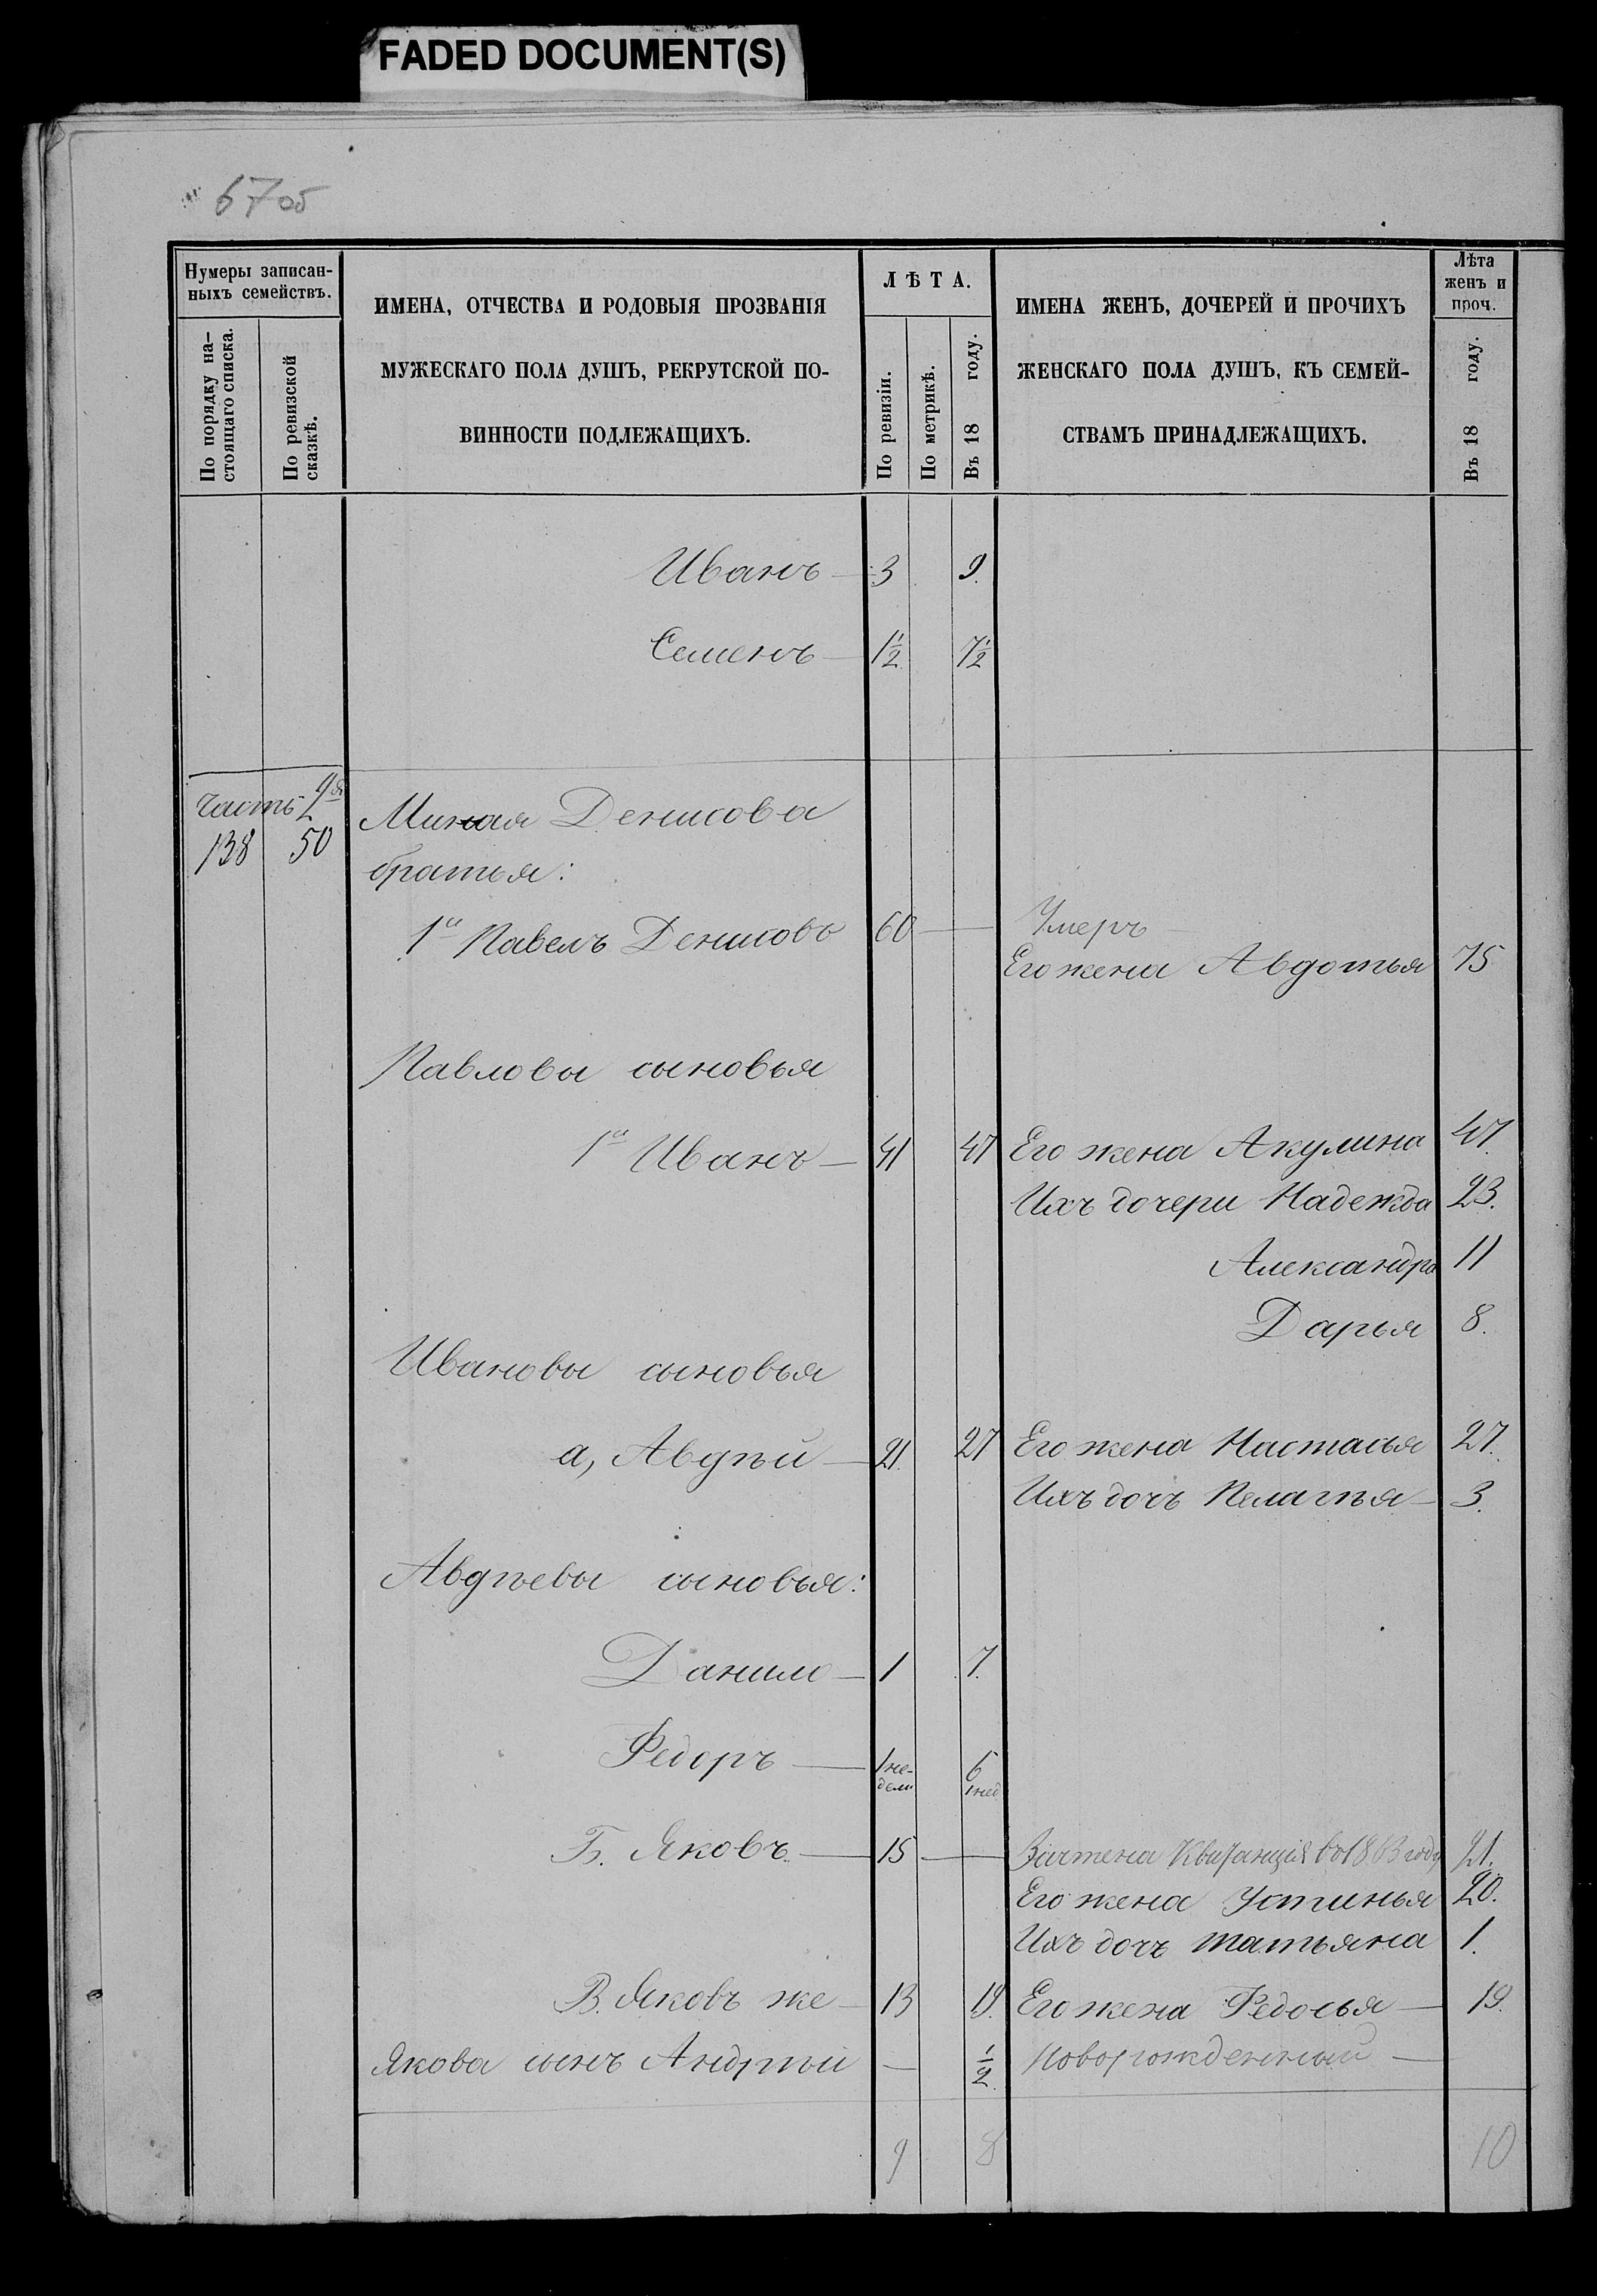 FADED DOCUMENT(S)
67 об
Нумеры записан-
ныхъ семействъ.
По порядку на-
стоящаго списка.
По ревизской
сказкѣ.
ИМЕНА, ОТЧЕСТВА И РОДОВЫЯ ПРОЗВАНІЯ
МУЖЕСКАГО ПОЛА ДУШЪ, РЕКРУТСКОЙ ПО-
ВИННОСТИ ПОДЛЕЖАЩИХЪ.
ЛѢТА.
По ревизіи.
По метрикѣ.
Въ 18 году.
ИМЕНА ЖЕНЪ, ДОЧЕРЕЙ И ПРОЧИХЪ
ЖЕНСКАГО ПОЛА ДУШЪ, КЪ СЕМЕЙ-
СТВАМЪ ПРИНАДЛЕЖАЩИХЪ.
Лѣта
женъ и
проч.
Въ 18 году.
Иванъ — 3 9.
Семенъ — 1½ 7½
Часть
138 50 Миная Денисова
братья:
1й Павелъ Денисовъ 60 — Умеръ
Его жена Авдотья 75
Павловы сыновья
1й Иванъ — 41 47 Его жена Акулина 47.
Ихъ дочери Надежда 23.
Александра 11
Дарья 8.
Ивановы сыновья
а, Авдѣй — 21. 27 Его жена Настасья 27.
Ихъ дочь Пелагѣя — 3.
Авдѣевы сыновья:
Данило — 1 7.
Федоръ — 1 не-
дели 6
1 нед
Б. Яковъ. — 15 — Зачтена Квитанція въ 1863 году 21.
Его жена Устинья 20.
Ихъ дочь Татьяна 1.
В. Яковъ же — 13 19. Его жена Федосья — 19.
Якова сынъ Андрѣй — ½ Новорожденный —
9 8 10